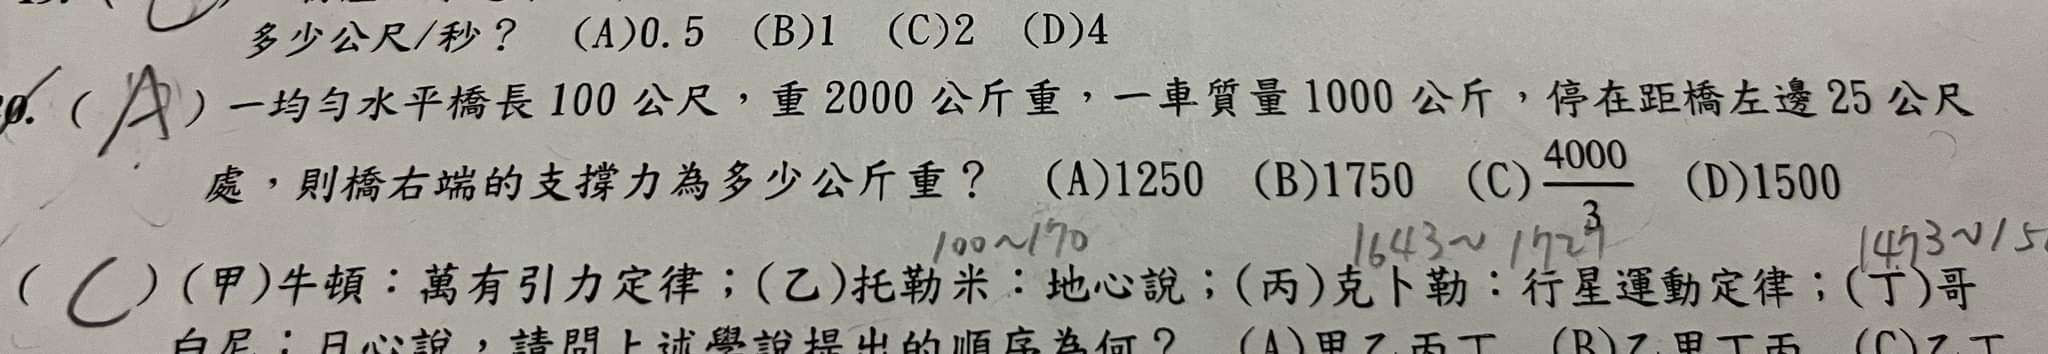 多少公尺/秒? (A)0.5 (B)1 (C)2 (D)4
(A)一均勻水平橋長 100 公尺,重 2000 公斤重,一車質量 1000 公斤,停在距橋左邊 25 公尺
處,則橋右端的支撐力為多少公斤重? (A)1250 (B)1750 (C)4000/3 (D)1500
100~170 1643~1727 1473~15
(C)(甲)牛頓:萬有引力定律;(乙)托勒米:地心說;(丙)克卜勒:行星運動定律;(丁)哥
白尼:日心說,請問上述學說提出的順序為何? (A)甲乙丙丁 (B)乙甲丁丙 (C)乙丁